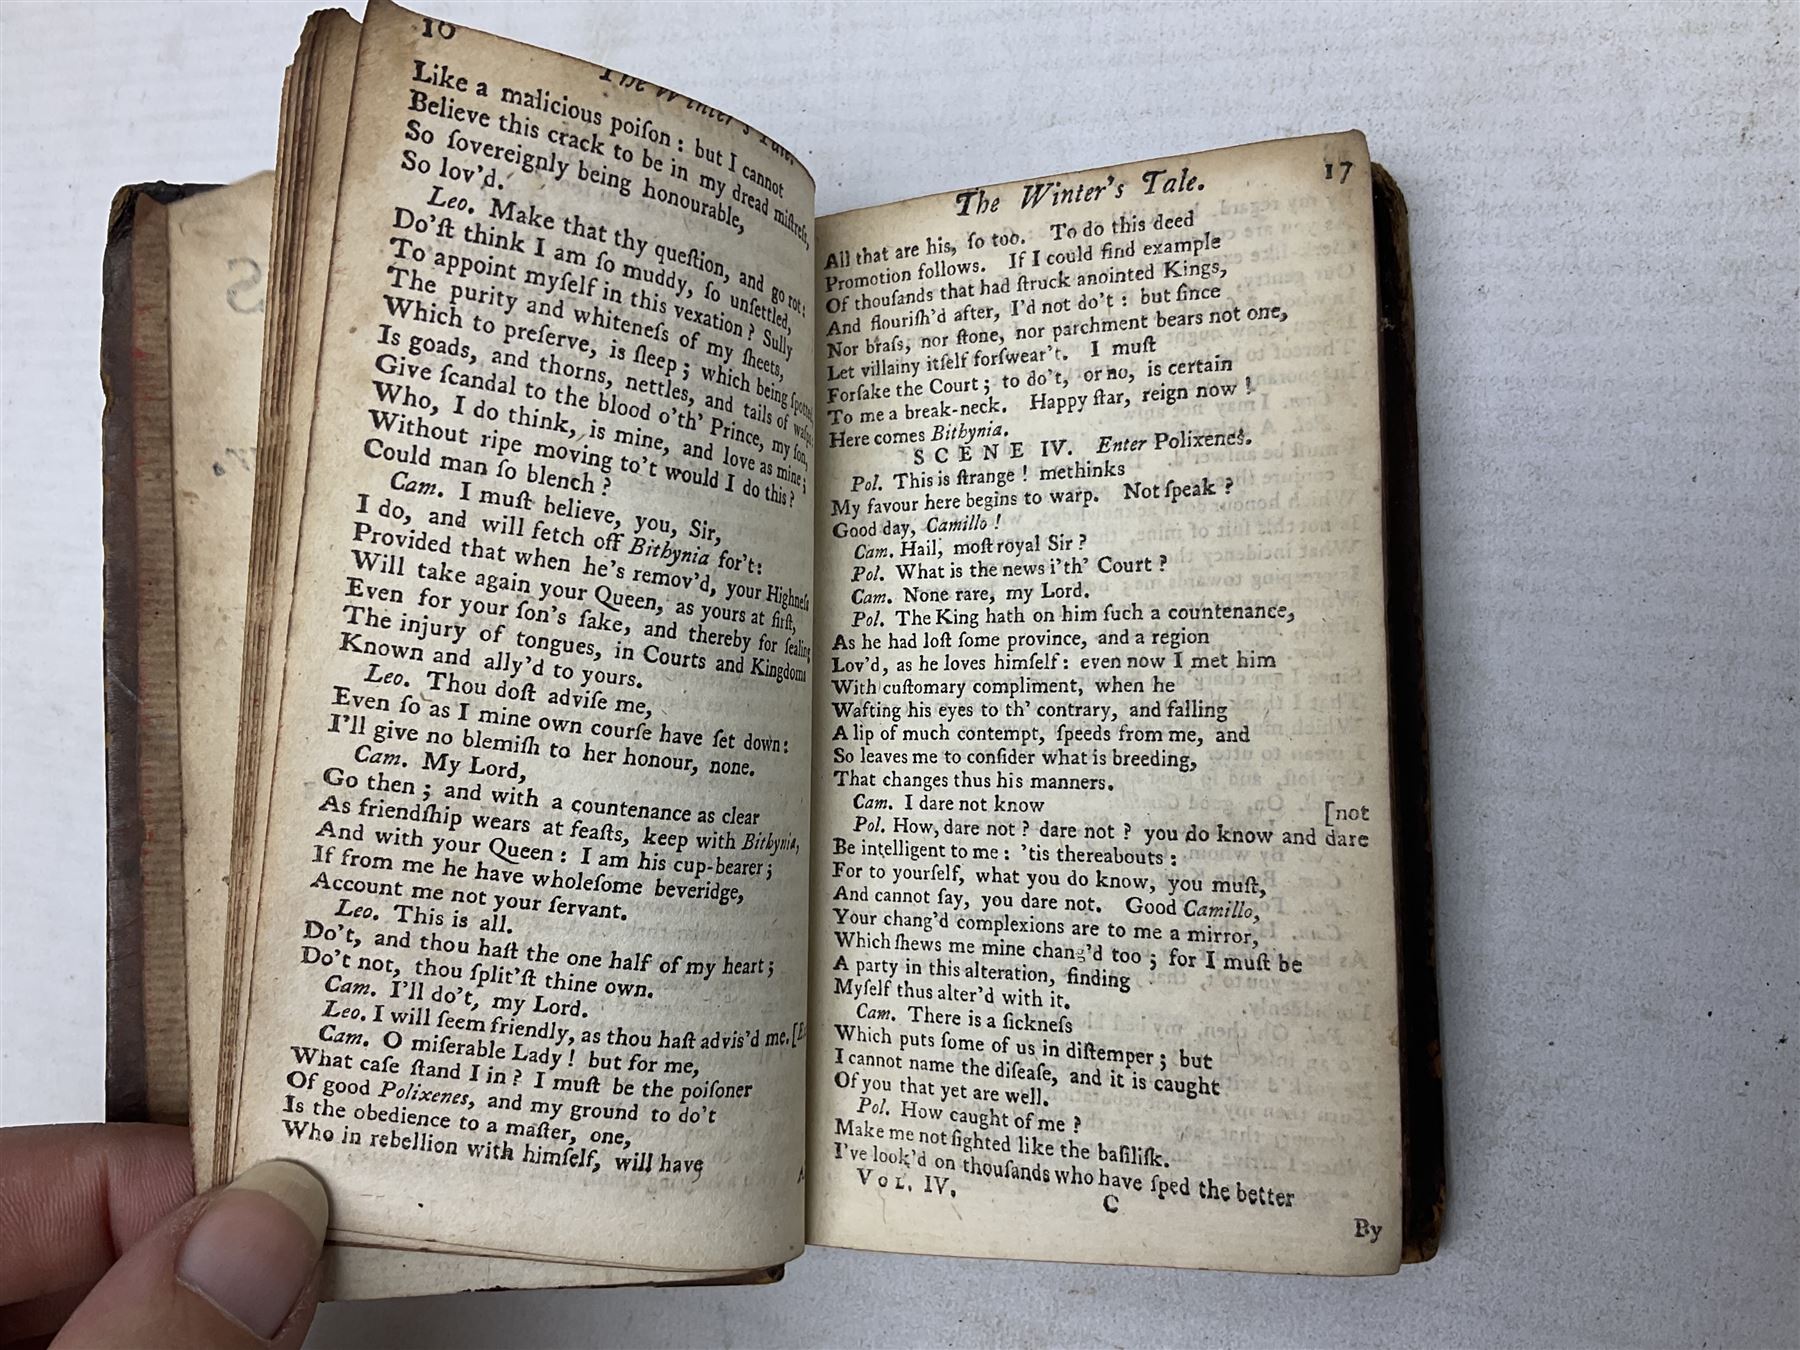 10
The Winter's Tale.
Like a malicious poiſon: but I cannot
Believe this crack to be in my dread miſtreſs,
So ſovereignly being honourable,
So lov'd.
Leo. Make that thy queſtion, and go rot:
Do'ſt think I am ſo muddy, ſo unſettled,
To appoint myſelf in this vexation? Sully
The purity and whiteneſs of my ſheets,
Which to preſerve, is ſleep; which being ſpotted,
Is goads, and thorns, nettles, and tails of waſps:
Give ſcandal to the blood o'th' Prince, my ſon,
Who, I do think, is mine, and love as mine;
Without ripe moving to't would I do this?
Could man ſo blench?
Cam. I muſt believe, you, Sir,
I do, and will fetch off Bithynia for't:
Provided that when he's remov'd, your Highneſs
Will take again your Queen, as yours at firſt,
Even for your ſon's ſake, and thereby for ſealing
The injury of tongues, in Courts and Kingdoms
Known and ally'd to yours.
Leo. Thou doſt adviſe me,
Even ſo as I mine own courſe have ſet down:
I'll give no blemiſh to her honour, none.
Cam. My Lord,
Go then; and with a countenance as clear
As friendſhip wears at feaſts, keep with Bithynia,
And with your Queen: I am his cup-bearer;
If from me he have wholeſome beveridge,
Account me not your ſervant.
Leo. This is all.
Do't, and thou haſt the one half of my heart;
Do't not, thou ſplit'ſt thine own.
Cam. I'll do't, my Lord.
Leo. I will ſeem friendly, as thou haſt advis'd me.
Cam. O miſerable Lady! but for me,
What caſe ſtand I in? I muſt be the poiſoner
Of good Polixenes, and my ground to do't
Is the obedience to a maſter, one,
Who in rebellion with himſelf, will have
The Winter's Tale.
17
All that are his, ſo too. To do this deed
Promotion follows. If I could find example
Of thouſands that had ſtruck anointed Kings,
And flouriſh'd after, I'd not do't: but ſince
Nor braſs, nor ſtone, nor parchment bears not one,
Let villainy itſelf forſwear't. I muſt
Forſake the Court; to do't, or no, is certain
To me a break-neck. Happy ſtar, reign now!
Here comes Bithynia.
SCENE IV. Enter Polixenes.
Pol. This is ſtrange! methinks
My favour here begins to warp. Not ſpeak?
Good day, Camillo!
Cam. Hail, moſt royal Sir?
Pol. What is the news i'th' Court?
Cam. None rare, my Lord.
Pol. The King hath on him ſuch a countenance,
As he had loſt ſome province, and a region
Lov'd, as he loves himſelf: even now I met him
With cuſtomary compliment, when he
Wafting his eyes to th' contrary, and falling
A lip of much contempt, ſpeeds from me, and
So leaves me to conſider what is breeding,
That changes thus his manners.
Cam. I dare not know
[not
Pol. How, dare not? dare not? you do know and dare
Be intelligent to me: 'tis thereabouts:
For to yourſelf, what you do know, you muſt,
And cannot ſay, you dare not. Good Camillo,
Your chang'd complexions are to me a mirror,
Which ſhews me mine chang'd too; for I muſt be
A party in this alteration, finding
Myſelf thus alter'd with it.
Cam. There is a ſickneſs
Which puts ſome of us in diſtemper; but
I cannot name the diſeaſe, and it is caught
Of you that yet are well.
Pol. How caught of me?
Make me not ſighted like the baſiliſk.
I've look'd on thouſands who have ſped the better
VOL. IV.
C
By